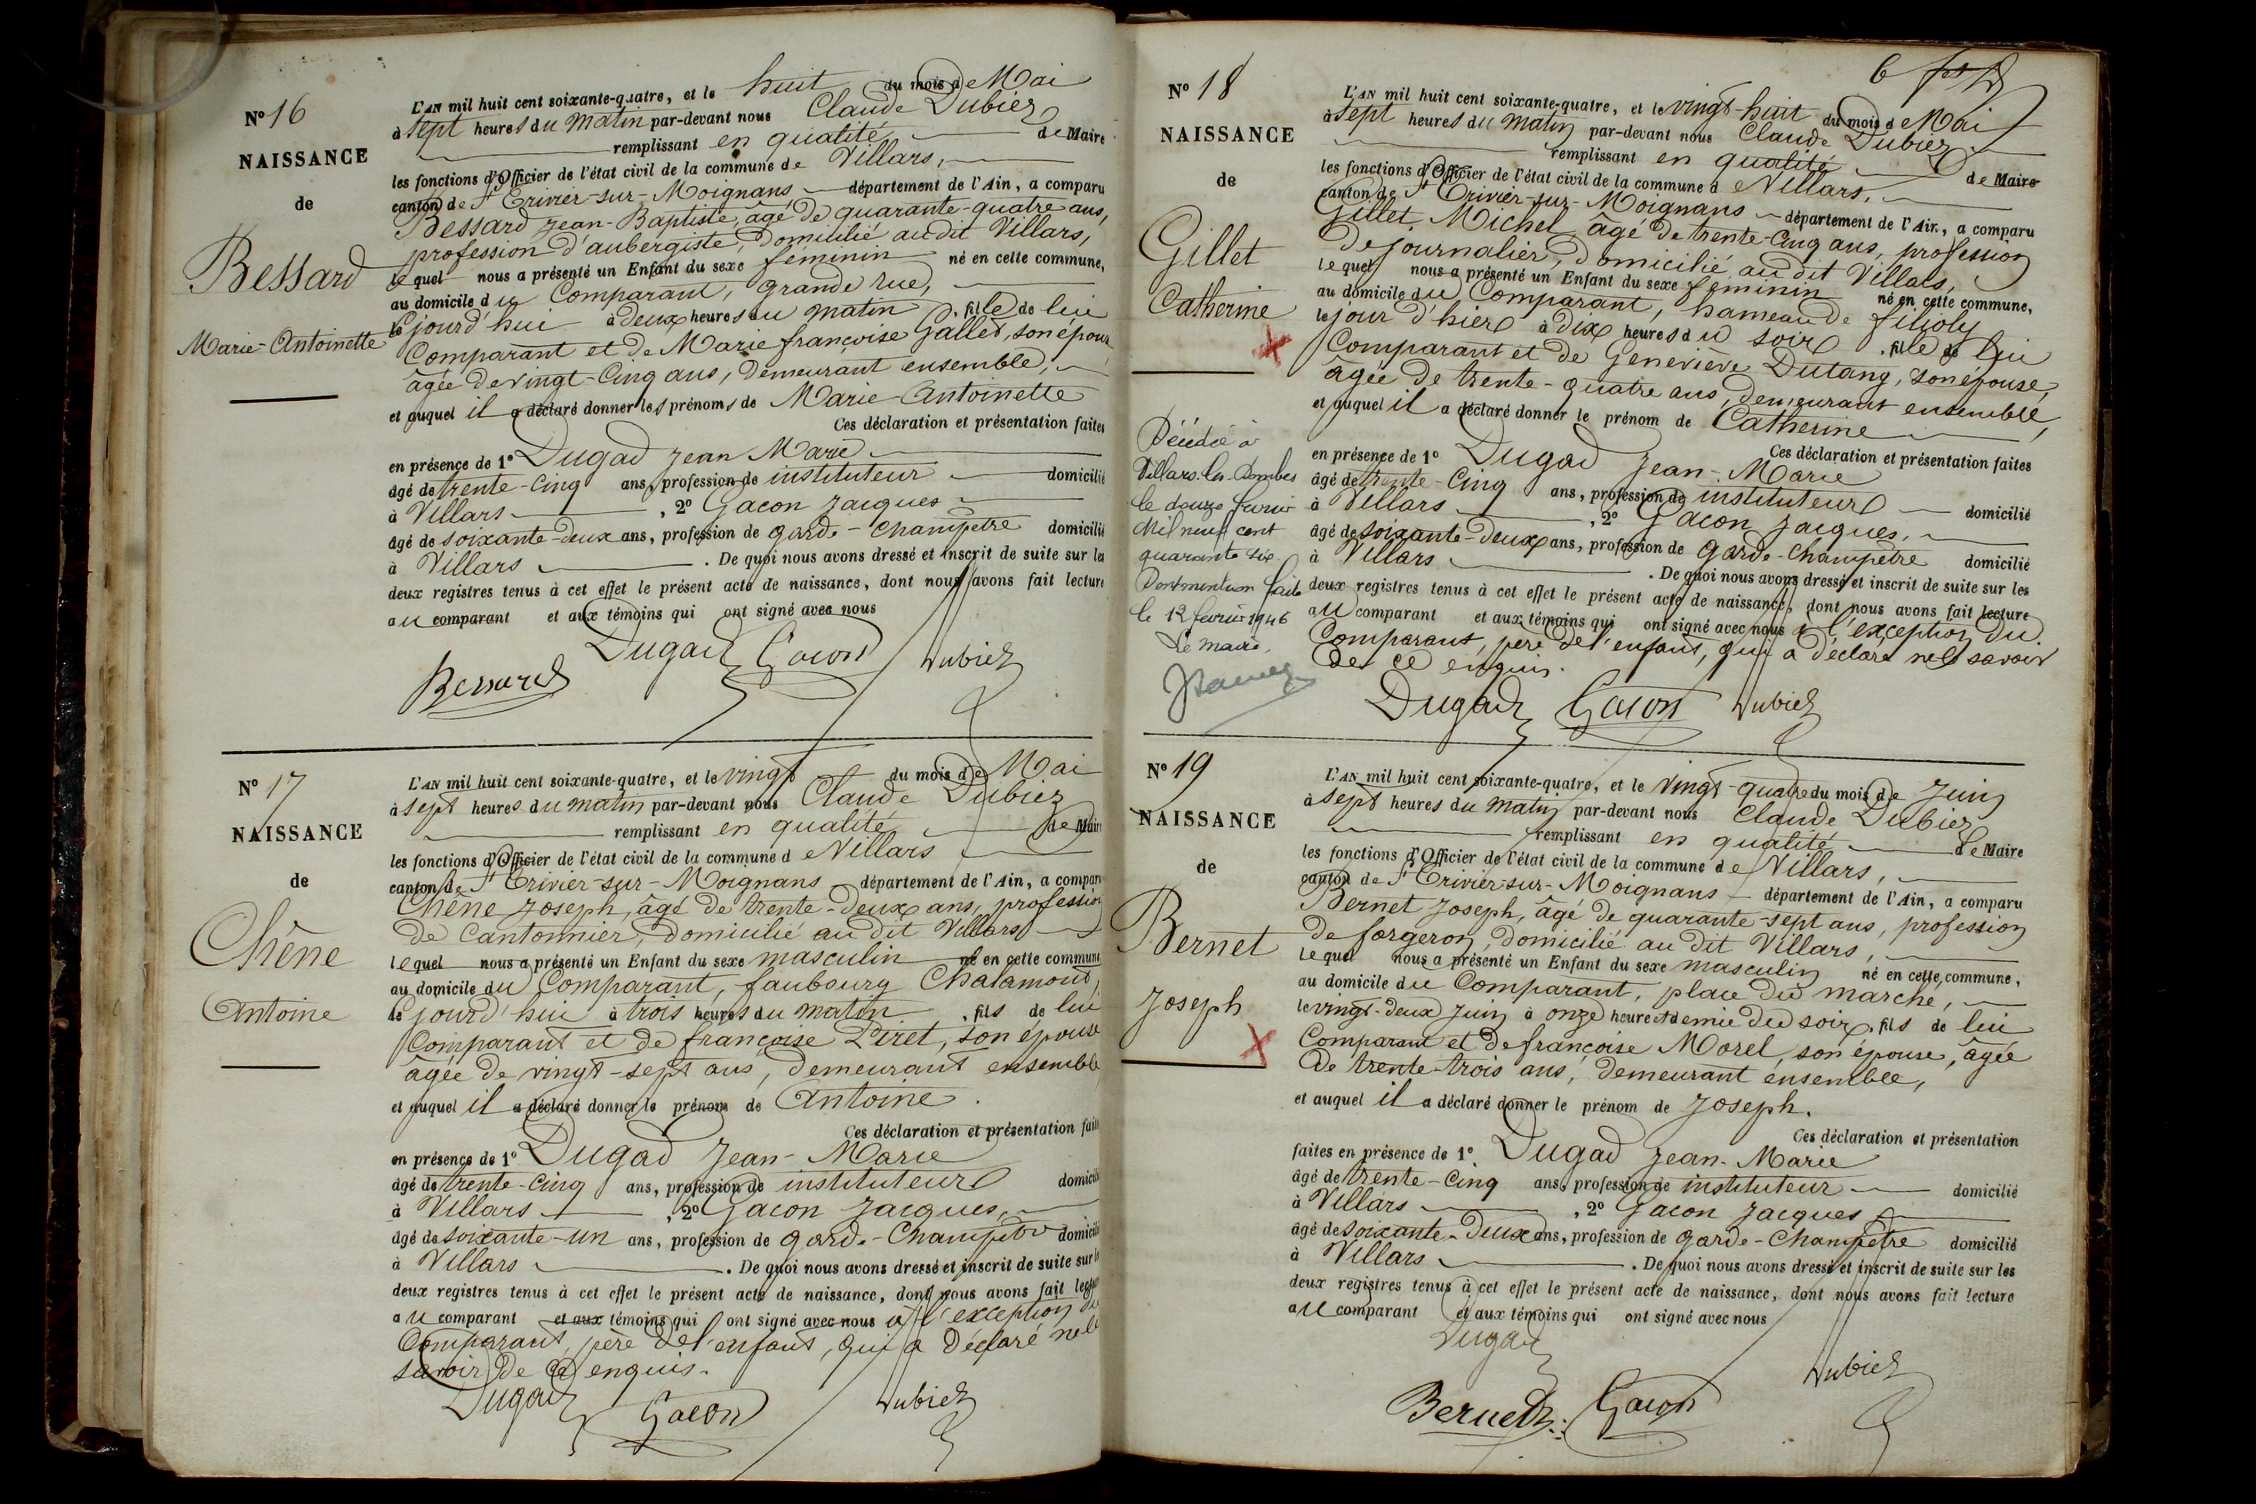 N° 16
NAISSANCE
de
Bessard
Marie-Antoinette
L'AN mil huit cent soixante-quatre, et le huit du mois de Mai
à sept heures du matin par-devant nous Claude Dubiez
remplissant en qualité de Maire
les fonctions d'Officier de l'état civil de la commune de Villars,
canton de St Trivier-sur-Moignans, département de l'Ain, a comparu
Bessard Jean-Baptiste, âgé de quarante-quatre ans,
profession d'aubergiste, domicilié au dit Villars,
lequel nous a présenté un Enfant du sexe féminin né en cette commune,
au domicile du Comparant, grande rue,
le jourd'hui à deux heures du matin, fille de lui
Comparant et de Marie françoise Gallet, son épouse
âgée de vingt-cinq ans, demeurant ensemble,
et auquel il a déclaré donner les prénoms de Marie Antoinette
Ces déclaration et présentation faites
en présence de 1° Dugad Jean Marie
âgé de trente-cinq ans, profession de instituteur domicilié
à Villars, 2° Gacon Jacques
âgé de soixante-deux ans, profession de garde-champêtre domicilié
à Villars. De quoi nous avons dressé et inscrit de suite sur les
deux registres tenus à cet effet le présent acte de naissance, dont nous avons fait lecture
au comparant et aux témoins qui ont signé avec nous
Dugad Gacon Dubiez
Bessard
N° 17
NAISSANCE
de
Chêne
Antoine
L'AN mil huit cent soixante-quatre, et le vingt du mois de Mai
à sept heures du matin par-devant nous Claude Dubiez
remplissant en qualité de Maire
les fonctions d'Officier de l'état civil de la commune de Villars
canton de St Trivier-sur-Moignans département de l'Ain, a comparu
Chêne Joseph, âgé de trente-deux ans, profession
de Cantonnier, domicilié au dit Villars
lequel nous a présenté un Enfant du sexe masculin né en cette commune
au domicile du Comparant, faubourg Chalamont,
le jourd'hui à trois heures du matin, fils de lui
Comparant et de françoise Péret, son épouse
âgée de vingt-sept ans, demeurant ensemble
et auquel il a déclaré donner le prénom de Antoine.
Ces déclaration et présentation faites
en présence de 1° Dugad Jean-Marie
âgé de trente-cinq ans, profession de instituteur domicilié
à Villars, 2° Gacon Jacques,
âgé de soixante-un ans, profession de garde-Champêtre domicilié
à Villars. De quoi nous avons dressé et inscrit de suite sur les
deux registres tenus à cet effet le présent acte de naissance, dont nous avons fait lecture
au comparant et aux témoins qui ont signé avec nous à l'exception du
Comparant, père de l'enfant, qui a déclaré ne le
savoir de ce enquis.
Dugad Gacon Dubiez
6
N° 18
NAISSANCE
de
Gillet
Catherine
Décédée à
Villars-les-Dombes
le douze février
Mil neuf cent
quarante six
le 12 février 1946
Le maire,
L'AN mil huit cent soixante-quatre, et le vingt-huit du mois de Mai
à sept heures du matin par-devant nous Claude Dubiez
remplissant en qualité de Maire
les fonctions d'Officier de l'état civil de la commune de Villars,
canton de St Trivier-sur-Moignans département de l'Ain, a comparu
Gillet Michel, âgé de trente-cinq ans, profession
de journalier, domicilié au dit Villars,
lequel nous a présenté un Enfant du sexe féminin né en cette commune,
au domicile du Comparant, hameau de filioly
le jour d'hier à dix heures du soir, fille de lui
Comparant et de Geneviève Dutang, son épouse,
âgée de trente-quatre ans, demeurant ensemble,
et auquel il a déclaré donner le prénom de Catherine
Ces déclaration et présentation faites
en présence de 1° Dugad Jean-Marie
âgé de trente-cinq ans, profession de instituteur domicilié
à Villars, 2° Gacon Jacques,
âgé de soixante-deux ans, profession de garde-champêtre domicilié
à Villars. De quoi nous avons dressé et inscrit de suite sur les
deux registres tenus à cet effet le présent acte de naissance, dont nous avons fait lecture
au comparant et aux témoins qui ont signé avec nous à l'exception du
Comparant, père de l'enfant, qui a déclaré ne le savoir
de ce enquis.
Dugad Gacon Dubiez
N° 19
NAISSANCE
de
Bernet
Joseph
L'AN mil huit cent soixante-quatre, et le vingt-quatre du mois de Juin
à sept heures du matin par-devant nous Claude Dubiez
remplissant en qualité de Maire
les fonctions d'Officier de l'état civil de la commune de Villars,
canton de St Trivier-sur-Moignans département de l'Ain, a comparu
Bernet Joseph, âgé de quarante-sept ans, profession
de forgeron, domicilié au dit Villars,
lequel nous a présenté un Enfant du sexe masculin né en cette commune,
au domicile du Comparant, place du marché,
le vingt-deux Juin à onze heures et demie du soir, fils de lui
Comparant et de françoise Morel, son épouse, âgée
de trente-trois ans, demeurant ensemble,
et auquel il a déclaré donner le prénom de Joseph.
Ces déclaration et présentation
faites en présence de 1° Dugad Jean-Marie
âgé de trente-cinq ans, profession de instituteur domicilié
à Villars, 2° Gacon Jacques
âgé de soixante-deux ans, profession de garde-Champêtre domicilié
à Villars. De quoi nous avons dressé et inscrit de suite sur les
deux registres tenus à cet effet le présent acte de naissance, dont nous avons fait lecture
au comparant et aux témoins qui ont signé avec nous
Dugad
Dubiez
Bernet Gacon